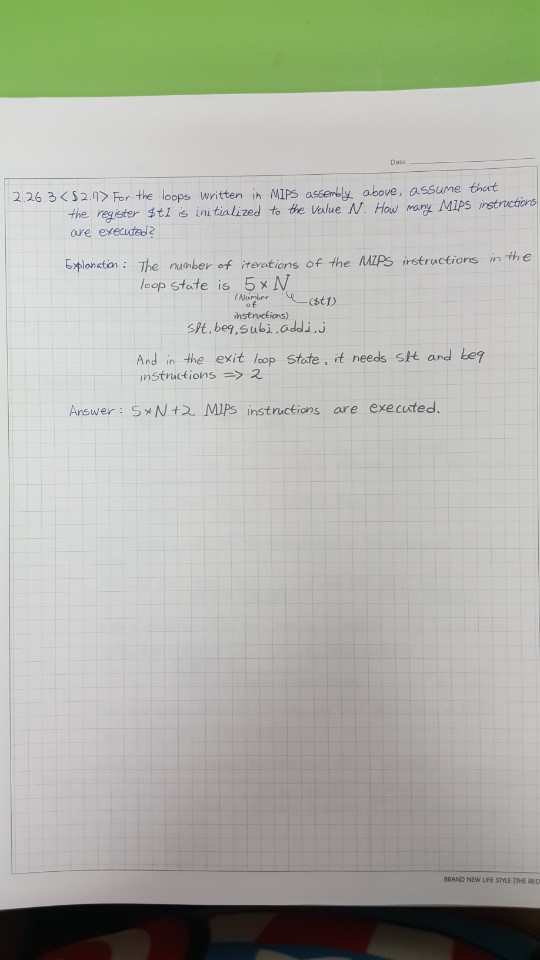 Date
2.26.3 <§2.7> For the loops written in MIPS assembly above, assume that
the register $t1 is initialized to the value N. How many MIPS instructions
are executed?
Explanation : The number of iterations of the MIPS instructions in the
loop state is 5 × N
(Number of instructions) ($t1)
slt, beq, subi, addi, j
And in the exit loop state, it needs slt and beq
instructions => 2
Answer : 5×N+2 MIPS instructions are executed.
BRAND NEW LIFE STYLE [THE RED